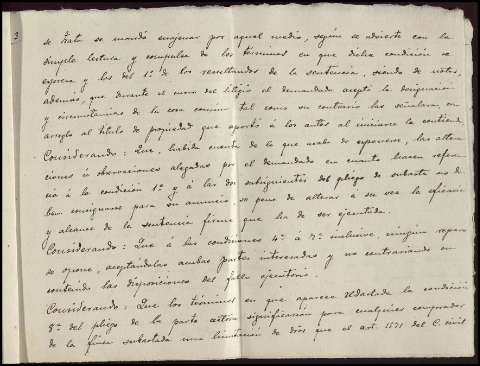 se trata se mandó enajenar por aquel medio, según se advierte con la
simple lectura y compulsa de los términos en que dicha condición se
expresa y los del 1º de los resultandos de la sentencia, siendo de notar,
además, que durante el curso del litigio el demandado aceptó la designación
y circunstancias de la cosa común tal como su contrario las señalara, con
arreglo al título de propiedad que aportó á los autos al iniciarse la contienda
Considerando: Que habida cuenta de lo que acaba de exponerse, las altera-
ciones ú observaciones alegadas por el demandado en cuanto hacen referen-
cia á la condición 1ª y á las dos subsiguientes del pliego de subasta no de-
ben consignarse para su anuncio so pena de alterar á su vez la eficacia
y alcance de la sentencia firme que ha de ser ejecutada.
Considerando: Que á las condiciones 4ª á 7ª inclusive, ningún reparo
se opone, aceptándolas ambas partes interesadas y no contrariando su
contenido las disposiciones del fallo ejecutorio.
Considerando: Que los términos en que aparece redactada la condición
8ª del pliego de la parte actora significarían para cualquier comprador
de la finca subastada una limitación de dros que el art. 1571 del C. civil